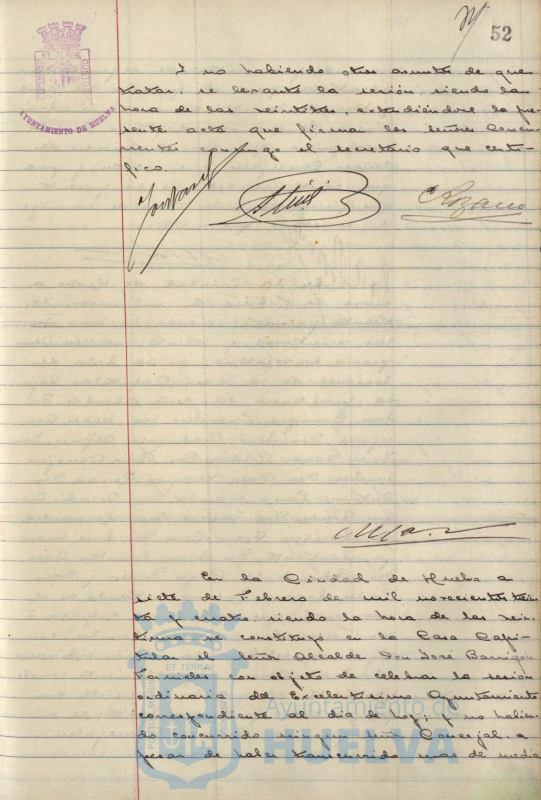 52
AYUNTAMIENTO DE HUELVA
Y no habiendo otros asuntos de que
tratar, se levanta la sesión, siendo la
hora de las veintitres, extendiéndose la pre-
sente acta que firman los señores Concu-
rrentes conmigo el secretario que certi-
fico.
Lozano
En la Ciudad de Huelva a
siete de Febrero de mil novecientos trein-
ta y cuatro, siendo la hora de las vein-
tiuna se constituyó en la Casa Capi-
tular el Señor Alcalde Don José Barrigón
Fornieles con objeto de celebrar la sesión
ordinaria del Excelentísimo Ayuntamiento
correspondiente al dia de hoy; y no habien-
do concurrido ningun señor Concejal, a
pesar de haber transcurrido mas de media
Ayuntamiento de
HUELVA